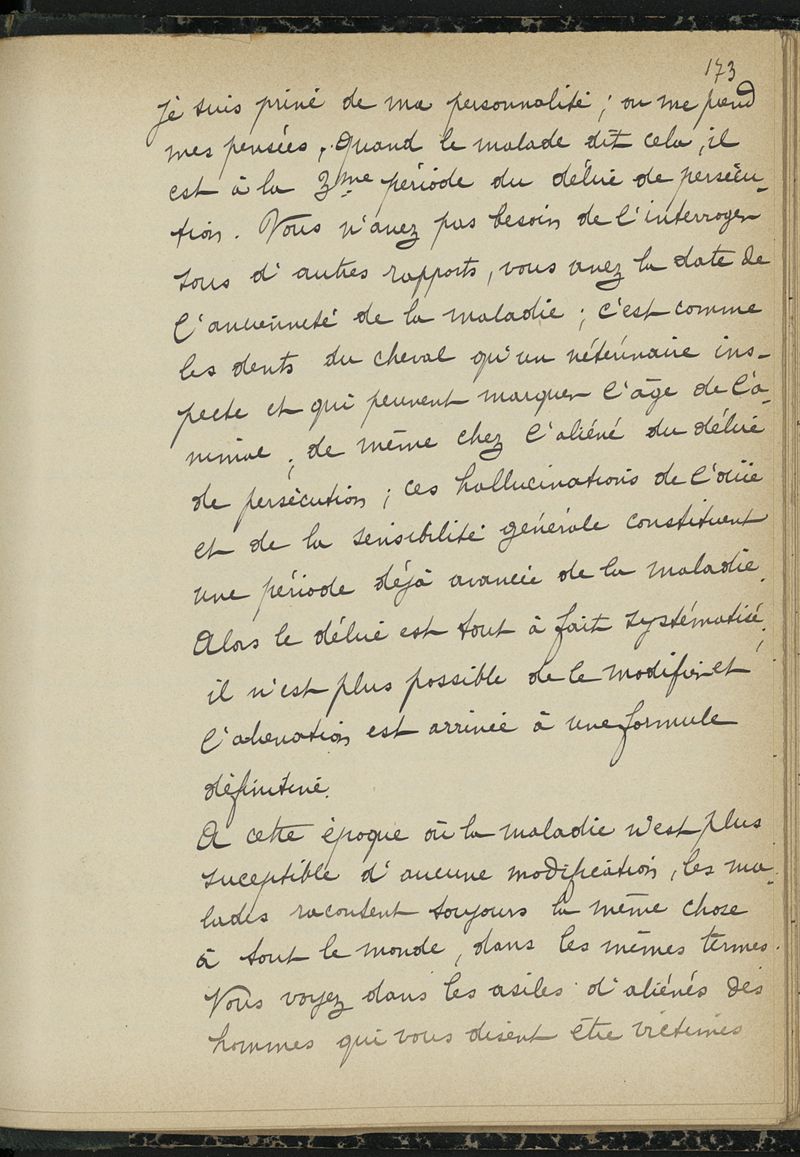 173
je suis privé de ma personnalité ; on me prend
mes pensées. Quand le malade dit cela, il
est à la 3me période du délire de persécu-
tion. Vous n'avez pas besoin de l'interroger
sous d'autres rapports, vous avez la date de
l'ancienneté de la maladie ; c'est comme
les dents du cheval qu'un vétérinaire ins-
pecte et qui peuvent marquer l'âge de l'a-
nimal ; de même chez l'aliéné du délire
de persécution ; ces hallucinations de l'ouïe
et de la sensibilité générale constituent
une période déjà avancée de la maladie.
Alors le délire est tout à fait systématisé ;
il n'est plus possible de le modifier et
l'alienation est arrivée à une formule
définitive.
A cette époque où la maladie n'est plus
suceptible d'aucune modification, les ma-
lades racontent toujours la même chose
à tout le monde, dans les mêmes termes.
Vous voyez dans les asiles d'aliénés des
hommes qui vous disent être victimes